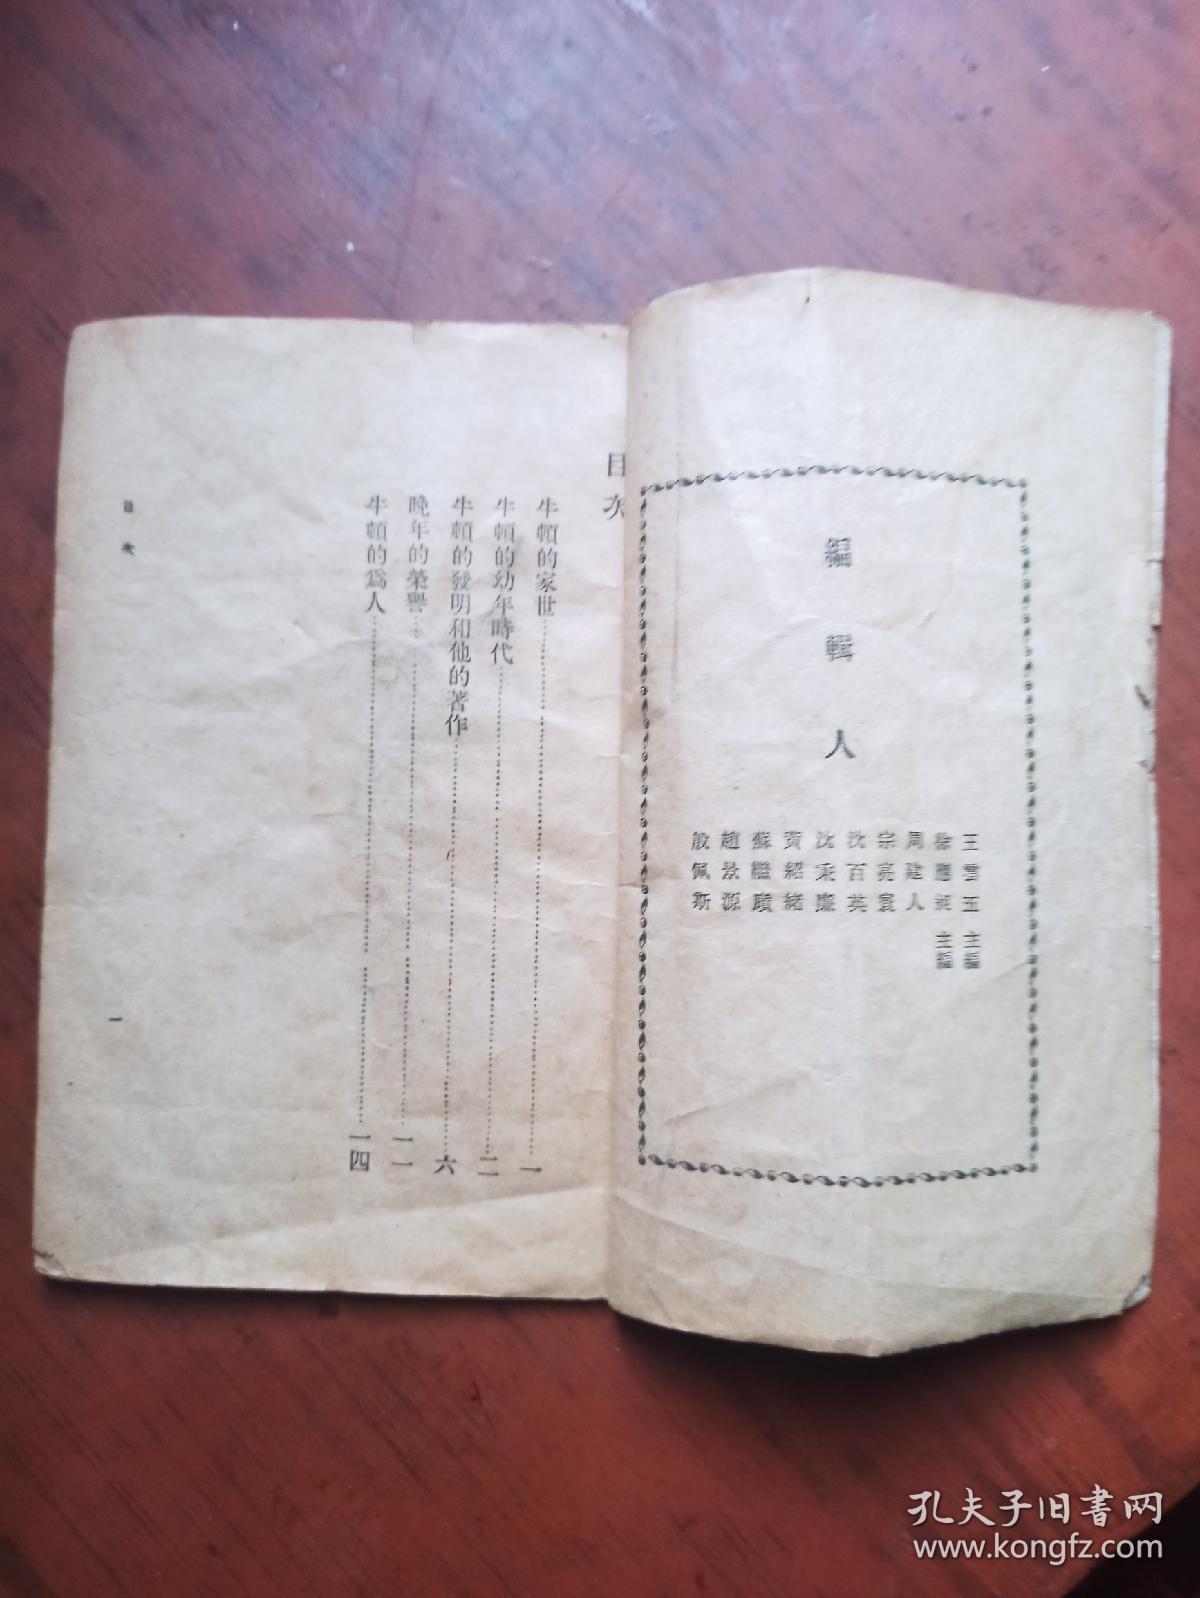 編輯人
王雲五 主編
徐應昶 主編
周建人
宗亮寰
沈百英
沈秉廉
黃紹緒
蘇繼廎
趙景源
殷佩斯
目次
牛頓的家世 一
牛頓的幼年時代 二
牛頓的發明和他的著作 六
晚年的榮譽 一一
牛頓的爲人 一四
目次
一
孔夫子旧书网
www.kongfz.com